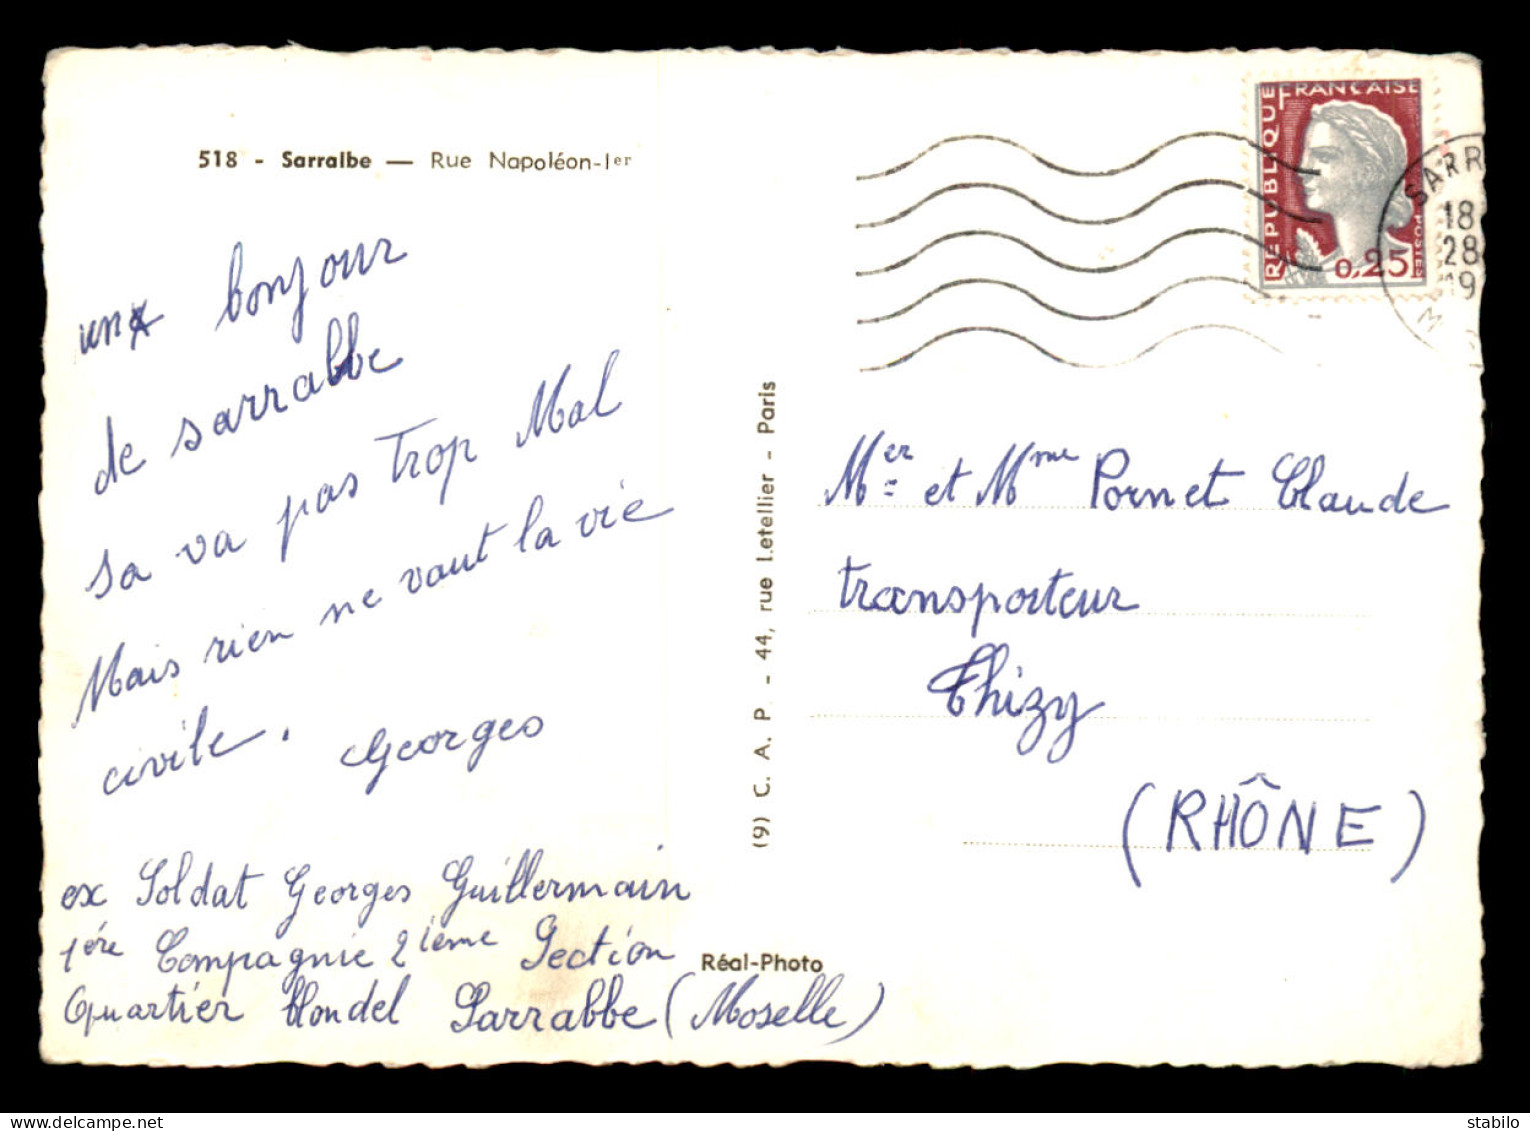 518 - Sarralbe — Rue Napoléon-Ier
un bonjour
de sarralbe
sa va pas trop Mal
Mais rien ne vaut la vie
civile. Georges
ex Soldat Georges Guillermain
1ére Compagnie 2ième Section
Quartier Mondel Sarralbe (Moselle)
(9) C. A. P. - 44, rue Letellier - Paris
Réal-Photo
REPUBLIQUE FRANÇAISE
POSTES
0,25
SARR
18
28
19
M
Mer et Mme Pornet Claude
transporteur
Thizy
(RHÔNE)
delcampe.net
stabilo